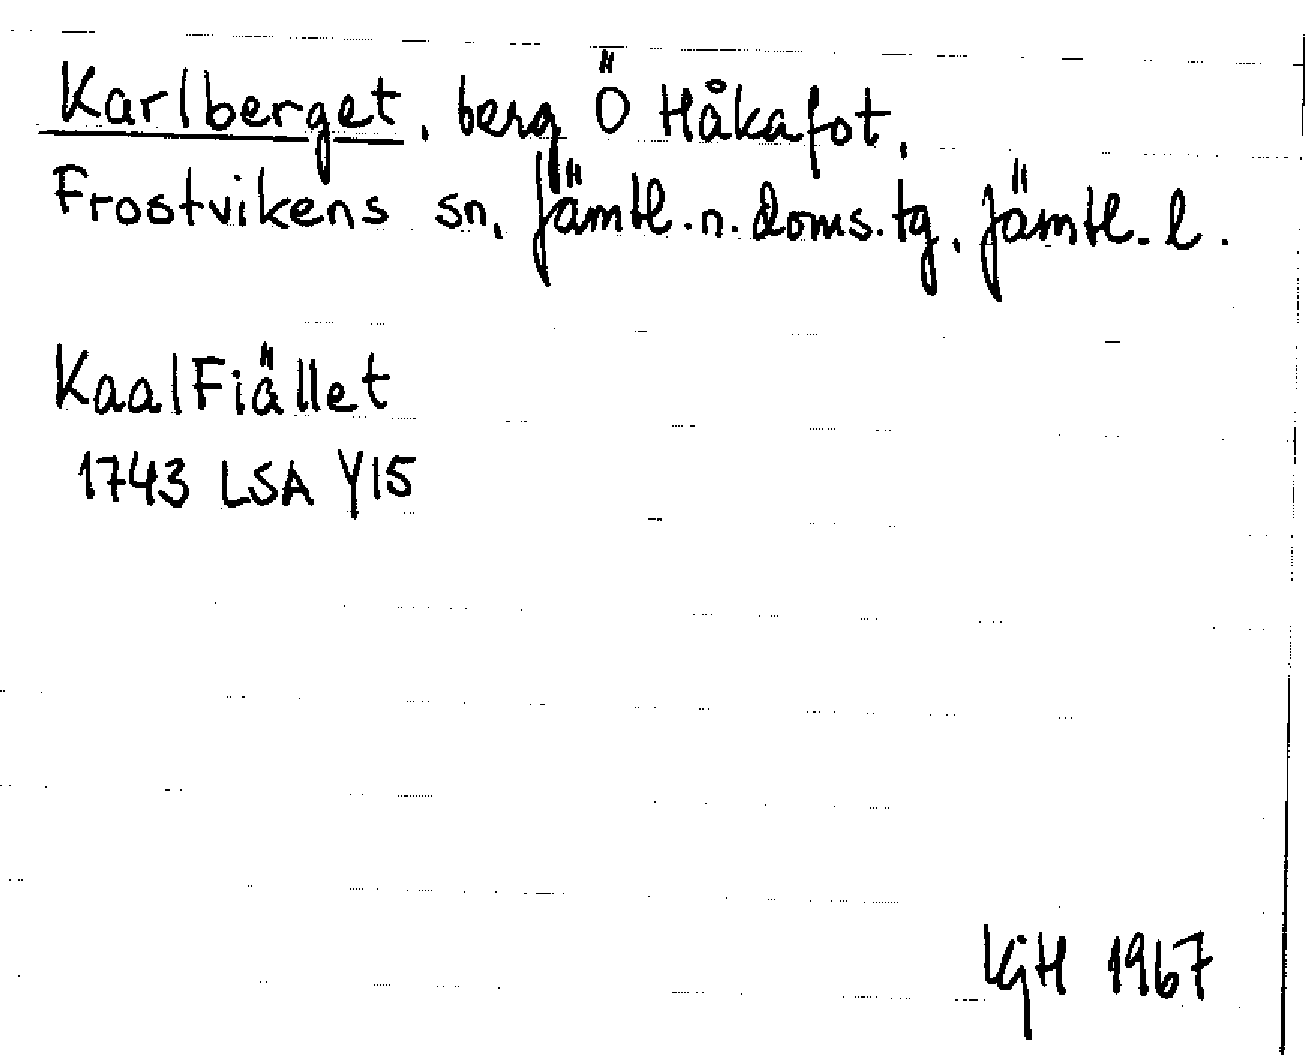 Karlberget, berg Ö Håkafot,
Frostvikens sn, Jämtl.n.doms.tg, Jämtl. l.
KaalFiället
1743 LSA Y15
KGH 1967